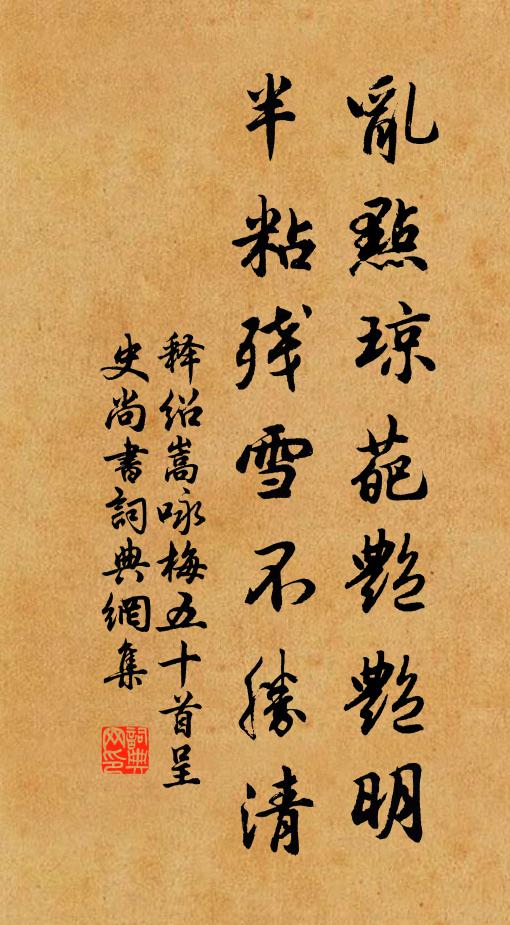 亂點琼葩艷艷明
半粘残雪不勝清
释绍嵩咏梅五十首呈
史尚書詞典網集
詞典
网印